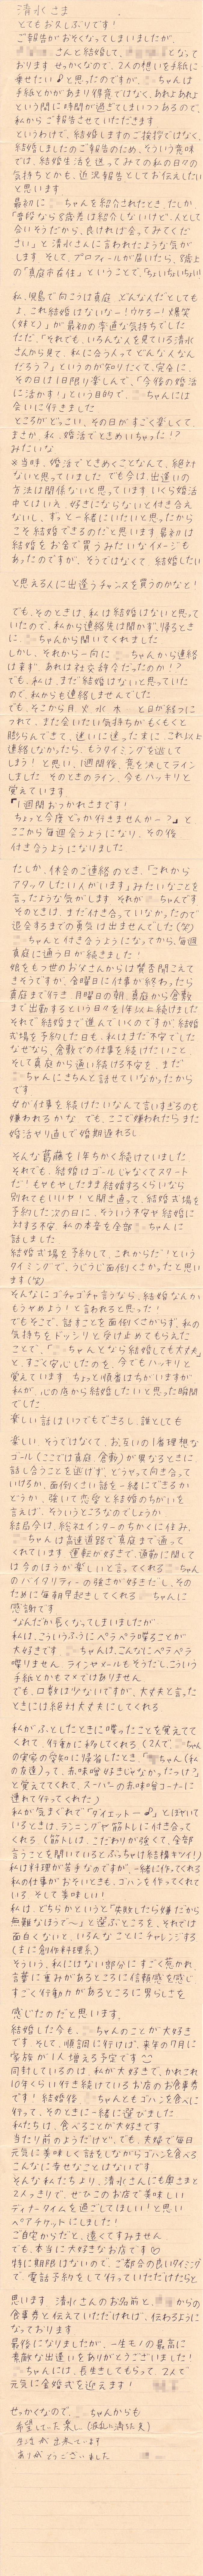 清水さま
とてもお久しぶりです！
ご報告がおそくなってしまいましたが、
さんと結婚して、となって
おります せっかくなので、2人の想いを手紙に
乗せたい♪と思ったのですが、ちゃんは
手紙とかがあまり得意ではなく、あれよあれよ
という間に時間が過ぎてしまいつつあるので、
私からご報告させていただきます
というわけで、結婚しますのご挨拶ではなく、
結婚しましたのご報告のため、そういう意味
では、結婚生活を送ってみての私の日々の
気持ちとかも、近況報告としてお伝えしたい
と思います
最初にちゃんを紹介されたとき、たしか
「普段なら8歳差は紹介しないけど、人として
合いそうだから、良ければ会ってみてくだ
さい」と清水さんに言われたような気が
します そして、プロフィールが届いたら、8歳上
の「真庭市在住」ということで、「ちょいちょいちょい!
私、児島で向こうは真庭 どんな人だとしても
よ、これ結婚はないなー！ウケるー！爆笑
(妹と)」が最初の率直な気持ちでした
ただ、「それでも、いろんな人を見ている清水
さんから見て、私に合う人ってどんな人なん
だろう？」というのが知りたくて、完全に、
その日は1日限り楽しんで、「今後の婚活
に活かす！」という目的で、ちゃんには
会いに行きました
ところがどっこい、その日がすごく楽しくて、
まさか 私、婚活でときめいちゃった！？
みたいな
※当時、婚活でときめくことなんて、絶対
ないと思っていました でも今は、出逢いの
方法は関係ないと思っています いくら婚活
中とはいえ、好きにならないと付き合え
ないし、ずっと一緒にいたいと思ったから
こそ結婚できるのだと思います 最初は
結婚をお金で買うみたいなイメージも
あったのですが、そうではなくて、結婚したい
と思える人に出逢うチャンスを買うのかなと！
でも、そのときは、私は結婚はないと思って
いたので、私から連絡先は聞かず、帰るとき
にちゃんから聞いてくれました
しかし、それから一向にちゃんから連絡
は来ず、あれは社交辞令だったのか！？
でも、私は、まだ結婚はないと思っていた
ので、私からも連絡しませんでした
でも、そこから月 火 水 と日が経つに
つれて、また会いたい気持ちがもくもくと
膨らんできて、迷いに迷ったまに これ以上
連絡しなかったら、もうタイミングを逃して
しまう！と思い、1週間後、意を決してライン
しました そのときのライン、今もハッキリと
覚えています
「1週間おつかれさまです！
ちょっと今度どっか行きませんかー？」と
ここから毎週会うようになり、その後
付き合うようになりました
たしか、休会のご連絡のとき、「これから
アタックしたい人がいます」みたいなことを
言ったような気がします それがちゃんです
そのときは、まだ付き合っていなかったので
退会するまでの勇気は出ませんでした(笑)
ちゃんと付き合うようになってから、毎週
真庭に通う日が続きました！
娘をもつ世のお父さんからは賛否聞こえて
きそうですが、金曜日に仕事が終わったら
真庭まで行き 月曜日の朝、真庭から倉敷
まで出勤するという日々を1年以上続けました
それで結婚まで進んでいくのですが 結婚
式場を予約した日も、私はまだ不安でした
なぜなら、倉敷での仕事を続けたいこと
そして真庭から通い続ける不安を、まだ
ちゃんにきちんと話せていなかったから
です
女が仕事を続けたいなんて言いすぎるのも
嫌われるかな でも、ここで嫌われたらまた
婚活やり直しで婚期遅れるし
そんな葛藤を1年ちかく続けていました
それでも、結婚はゴールじゃなくてスタート
だ！もやもやしたまま結婚するくらいなら
別れてもいいや！と開き直って、結婚式場を
予約した次の日に、そういう不安や結婚に
対する不安、私の本音を全部ちゃんに
話しました
結婚式場を予約して、これからだ！という
タイミングで、うじうじ面倒くさかったと思い
ます(笑)
そんなにゴチャゴチャ言うなら、結婚なんか
もうやめよう！と言われると思った！
でもそこで、話すことを面倒くさがらず、私の
気持ちをドッシリと受け止めてもらえた
ことで、「ちゃんとなら結婚しても大丈夫」
と、すごく安心したのを、今でもハッキリと
覚えています ちょっと順番はちがいますが
私が、心の底から結婚したいと思った瞬間
でした
楽しい話はいつでもできるし、誰とでも
楽しい そうではなくて、お互いの1番理想な
ゴール(ここでは真庭、倉敷)が異なるときに
話し合うことを逃げず、どうやって向き合って
いけるか、面倒くさい話を一緒にできるか
どうか、強いて恋愛と結婚のちがいを
言えば、そういうところなのでしょうか
結局今は、総社インターのちかくに住み、
ちゃんは高速道路で真庭まで通って
くれています 運転が好きで、通勤に関して
は今のほうが楽しいと言ってくれるちゃん
のバイタリティーの強さが好きだし、その
ために毎朝早起きしてくれるちゃんに
感謝です
なんだか長くなってしまいましたが
私は、こういうふうにペラペラ喋ることが
大好きです ちゃんは、こんなにペラペラ
喋りません ラインやメールもそうだし、こういう
手紙とかもマメではありません
でも、口数は少ないですが、大丈夫と言った
ときには絶対大丈夫にしてくれる
私がふとしたときに喋ったことを覚えてて
くれて、行動に移してくれる(2人で、ちゃん
の実家の愛知に帰省したとき、「ちゃん(私
の友達)って、赤味噌好きじゃなかったっけ？」
と覚えててくれて、スーパーの赤味噌コーナーに
連れて行ってくれた)
私が気まぐれで「ダイエットー♪」とぼやいて
いるときは、ランニングや筋トレに付き合って
くれる(筋トレは、こだわりが強くて、全部
言うことを聞いているとぶっちゃけ結構キツイ!)
私は料理が苦手なのですが、一緒に作ってくれる
私の仕事がおそいときも、ゴハンを作ってくれて
いる、そして美味しい！
私は、どちらかというと「失敗したら嫌だから
無難なほうで～」と選ぶところを、それでは
面白くないと、いろんなことにチャレンジする
(まさに創作料理系)
そういう、私にはない部分にすごく惹かれ、
言葉に重みがあるところに信頼感を感じ
すごく行動力があるところに男らしさを
感じたのだと思います。
結婚した今も、ちゃんのことが大好き
です そして、順調に行けば、来年の7月に
家族が1人増える予定です
同封しているのは 私が大好きで、かれこれ
10年くらい行き続けているお店のお食事券
です！結婚後、ちゃんともゴハンを食べに
行って、そのときに一緒に選びました
私たちは、食べることが大好きです
当たり前のようだけど、でも、夫婦で毎日
元気に美味しく話をしながらゴハンを食べる
こんなに幸せなことはないです
そんな私たちより、清水さんにも奥さまと
2人っきりで、ぜひこのお店で美味しい
ディナータイムを過ごしてほしい！と思い
ペアチケットにしました！
ご自宅からだと、遠くてすみません
でも、本当に大好きなお店です♡
特に期限はないので、ご都合の良いタイミング
で、電話予約をして行っていただけたらと
思います 清水さんのお名前と、からの
食事券と伝えていただければ、伝わるように
なっております
最後になりましたが、一生モノの最高に
素敵な出逢いをありがとうございました！
ちゃんには、長生きしてもらって、2人で
元気に金婚式を迎えます！
せっかくなので、ちゃんからも
希望していた楽し(波乱に満ちた)
生活が出来ています
ありがとうございました